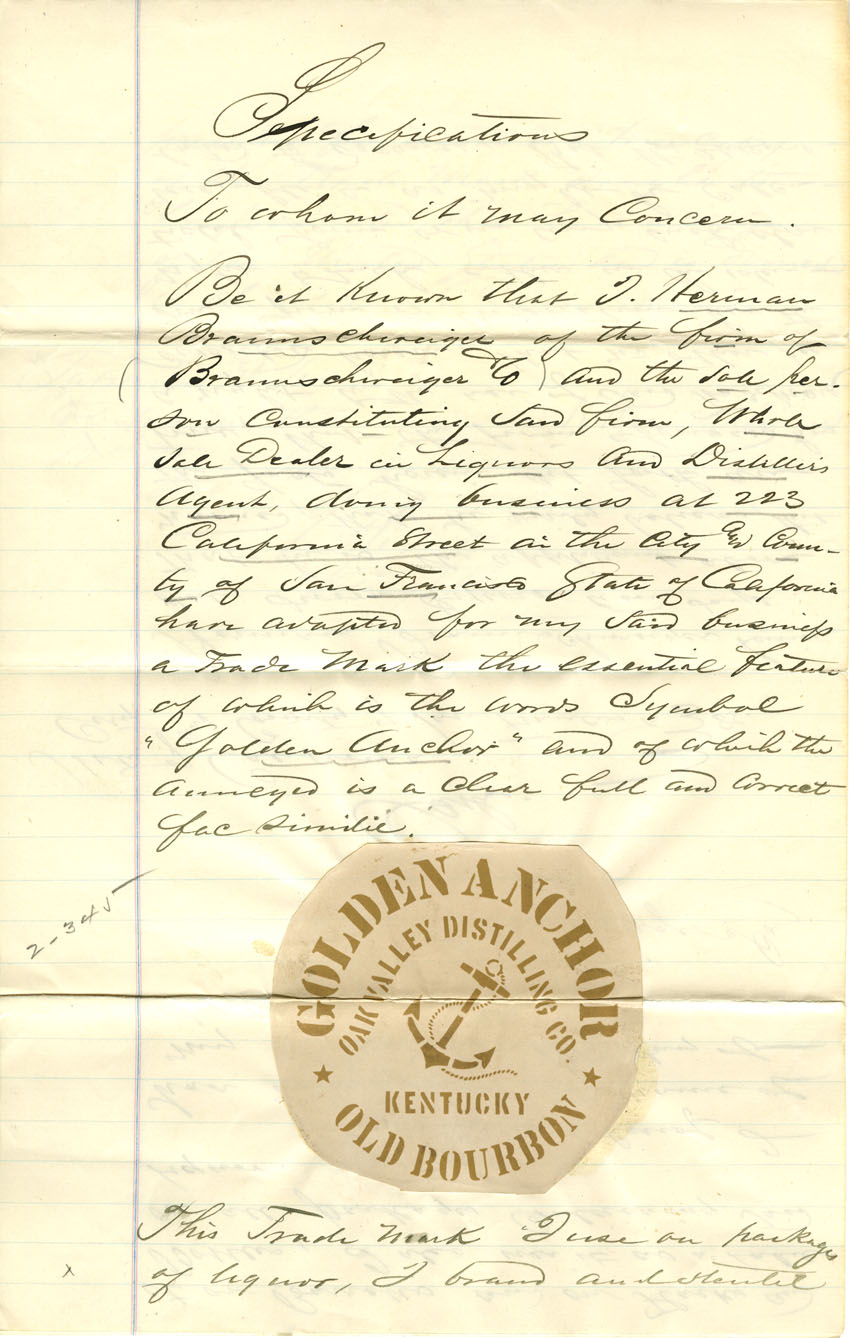 Specifications
To whom it may Concern.
Be it Known that I. Herman
Braunschweiger of the firm of
(Braunschweiger & Co) and the Sole per-
son Constituting Said firm, Whole
Sale Dealer in Liquors And Distillers
Agent, doing business at 223
California Street in the City and Coun-
ty of San Francisco State of California
have adapted for my Said business
a Trade Mark the essential feature
of which is the words Symbol
"Golden Anchor" and of which the
Annexed is a clear full and correct
fac similie.
2-345
GOLDEN ANCHOR
OAK VALLEY DISTILLING CO.
KENTUCKY
OLD BOURBON
This Trade Mark I use on packages
of liquor, I brand and stencil
x